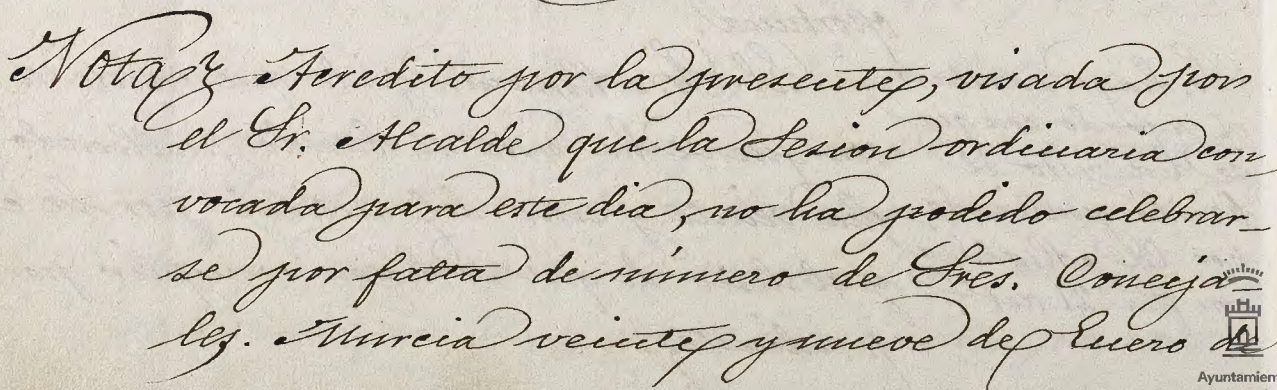 Nota⹀ Acredito por la presente, visada por
el Sr. Alcalde que la Sesion ordinaria con
vocada para este dia, no ha podido celebrar-
se por falta de número de Sres. Conceja-
les. Murcia veinte y nueve de Enero de
Ayuntamien